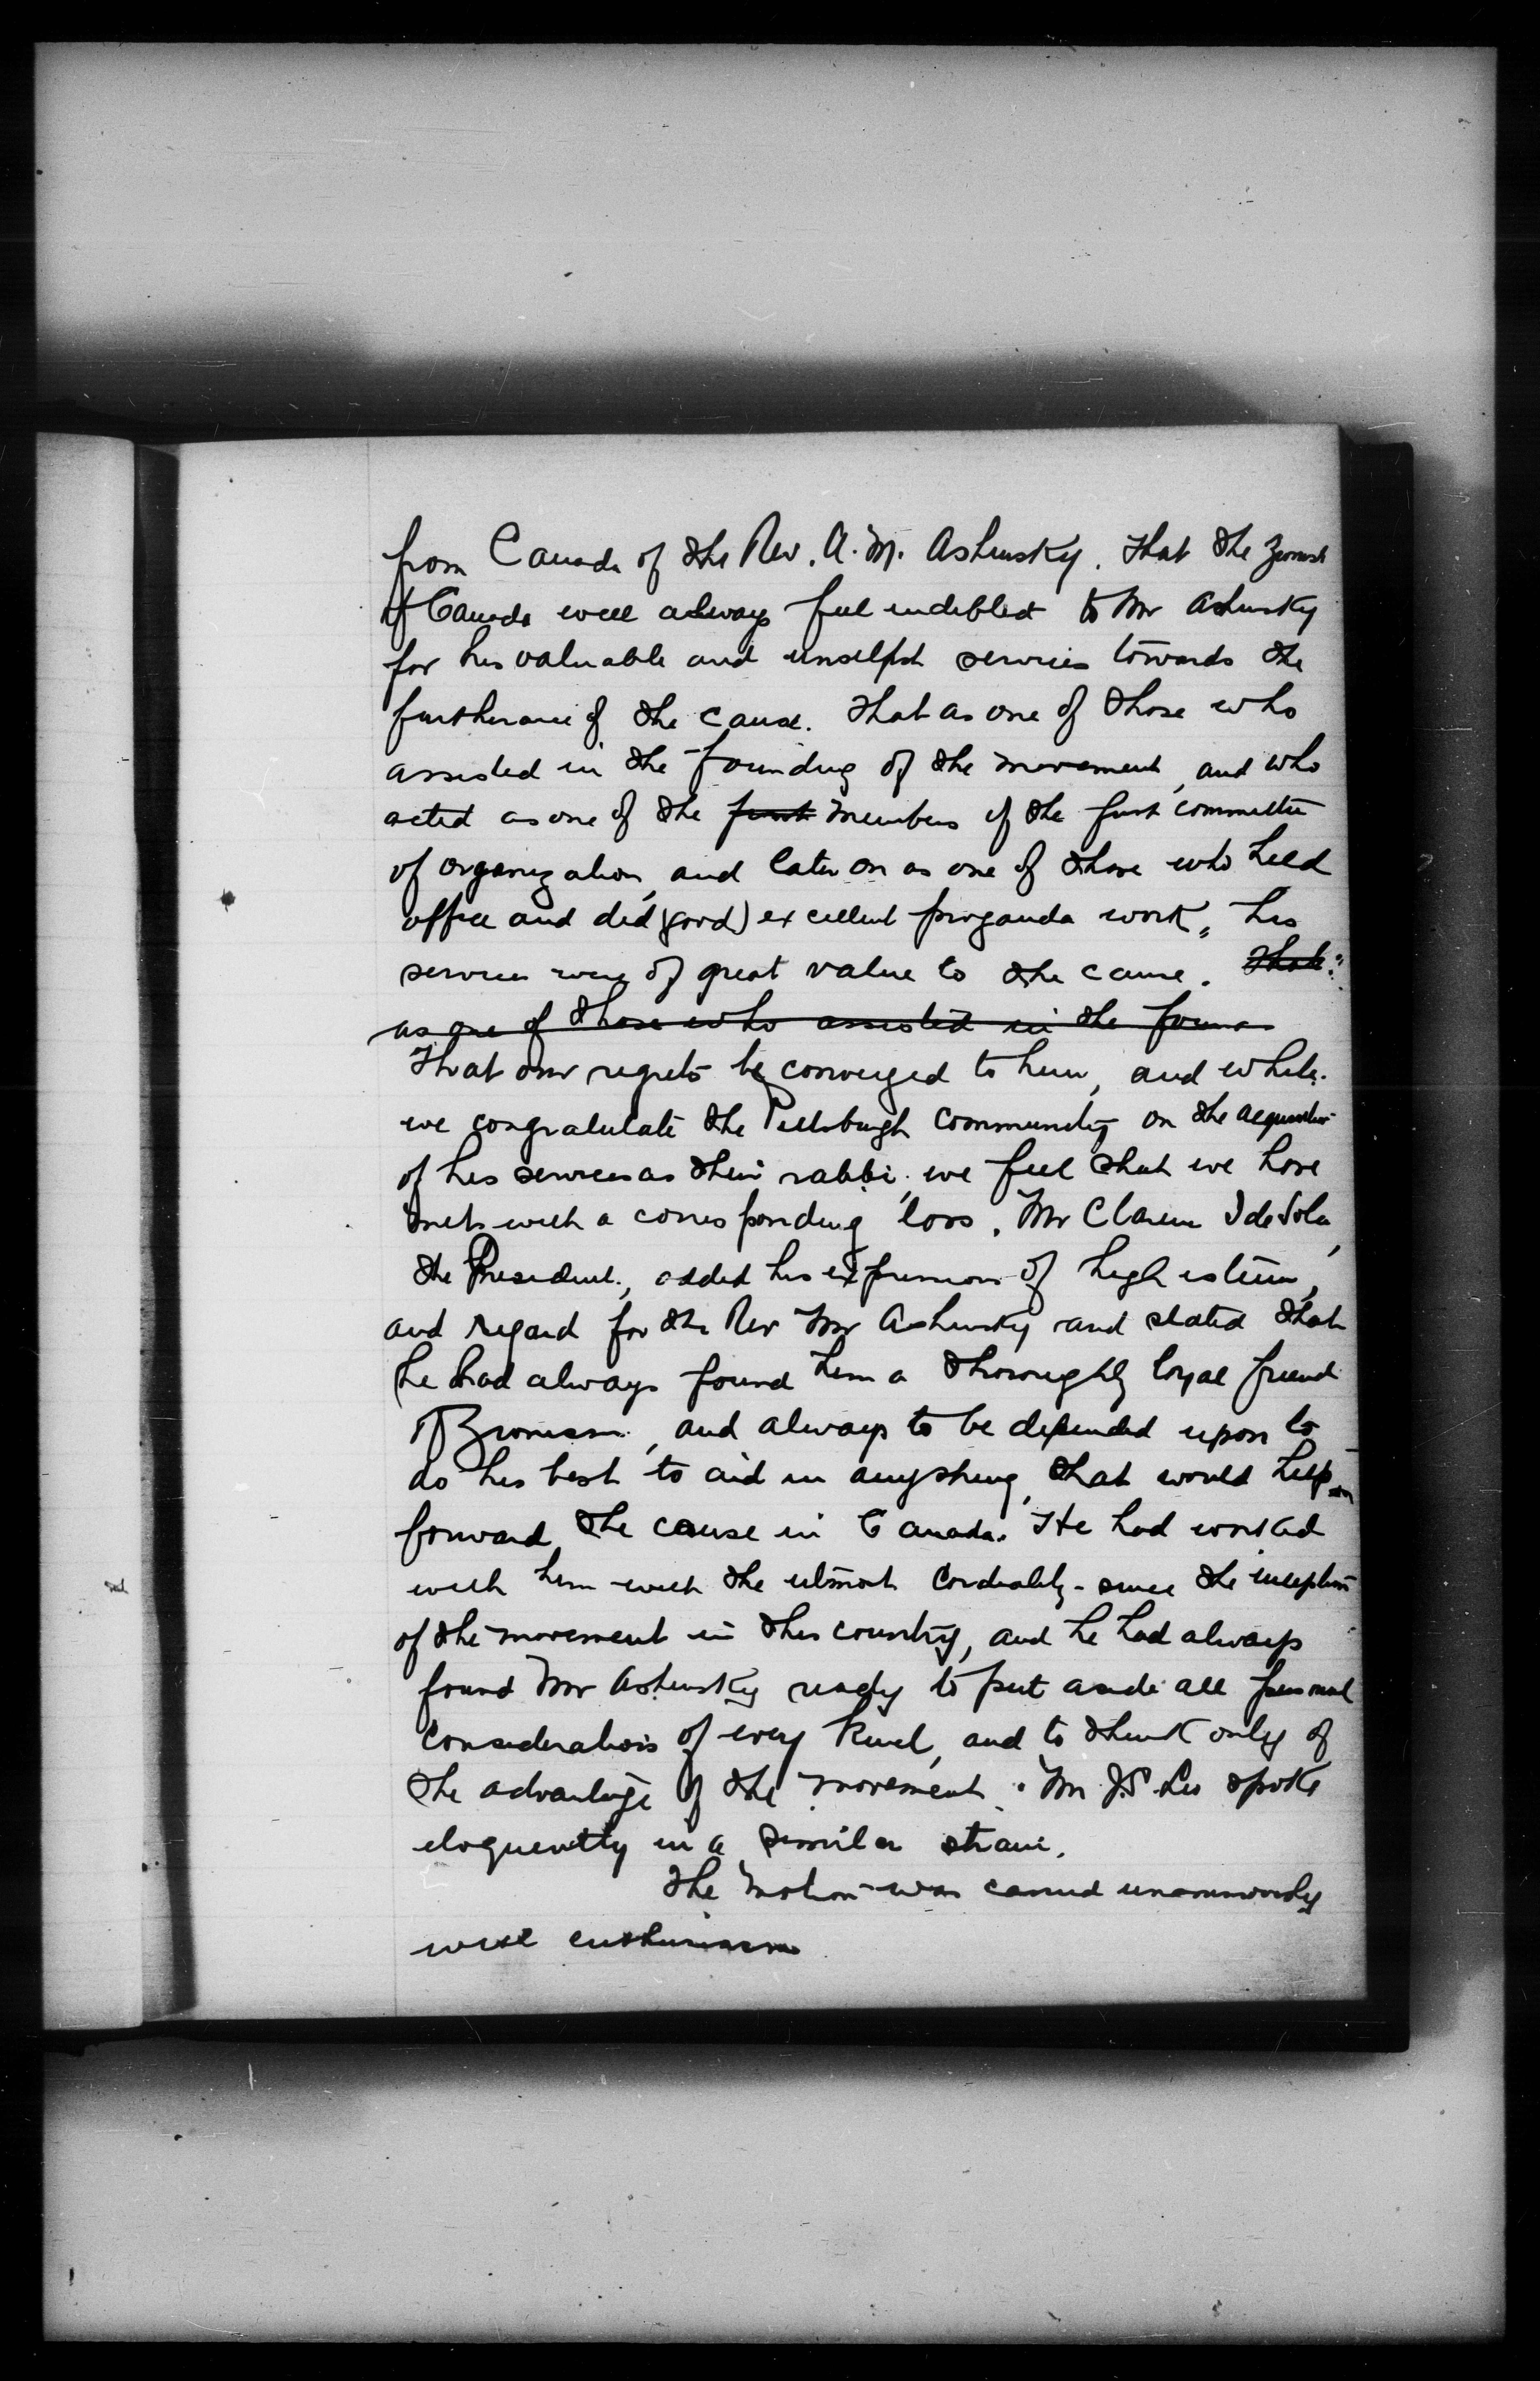 from Canada of the Rev. A. M. Ashinsky. That the Zionists
of Canada will always feel indebted to Mr Ashinsky
for his valuable and unselfish services towards the
furtherance of the cause. That as one of those who
assisted in the founding of the movement, and who
acted as one of the first members of the first committee
of organization, and later on as one of those who held
office and did (good) excellent proganda work, his
services were of great value to the cause. That
as one of those who assisted in the foun
That our regrets be conveyed to him, and while
we congratulate the Pittsburgh community on the acquisition
of his services as their rabbi, we feel that we have
met with a corresponding loss. Mr Clarence I de Sola,
the President, added his expression of high esteem,
and regard for the Rev Mr Ashinsky and stated that
he had always found him a thoroughly loyal friend
of Zionism, and always to be depended upon to
do his best to aid in anything, that would help on
forward the cause in Canada. He had worked
with him with the utmost cordiality since the inception
of the movement in this country, and he had always
found Mr Ashinsky ready to put aside all personal
considerations of every kind, and to think only of
the advantage of the movement. Mr J.S. Leo spoke
eloquently in a similar strain.
The motion was carried unanimously
with enthusiasm